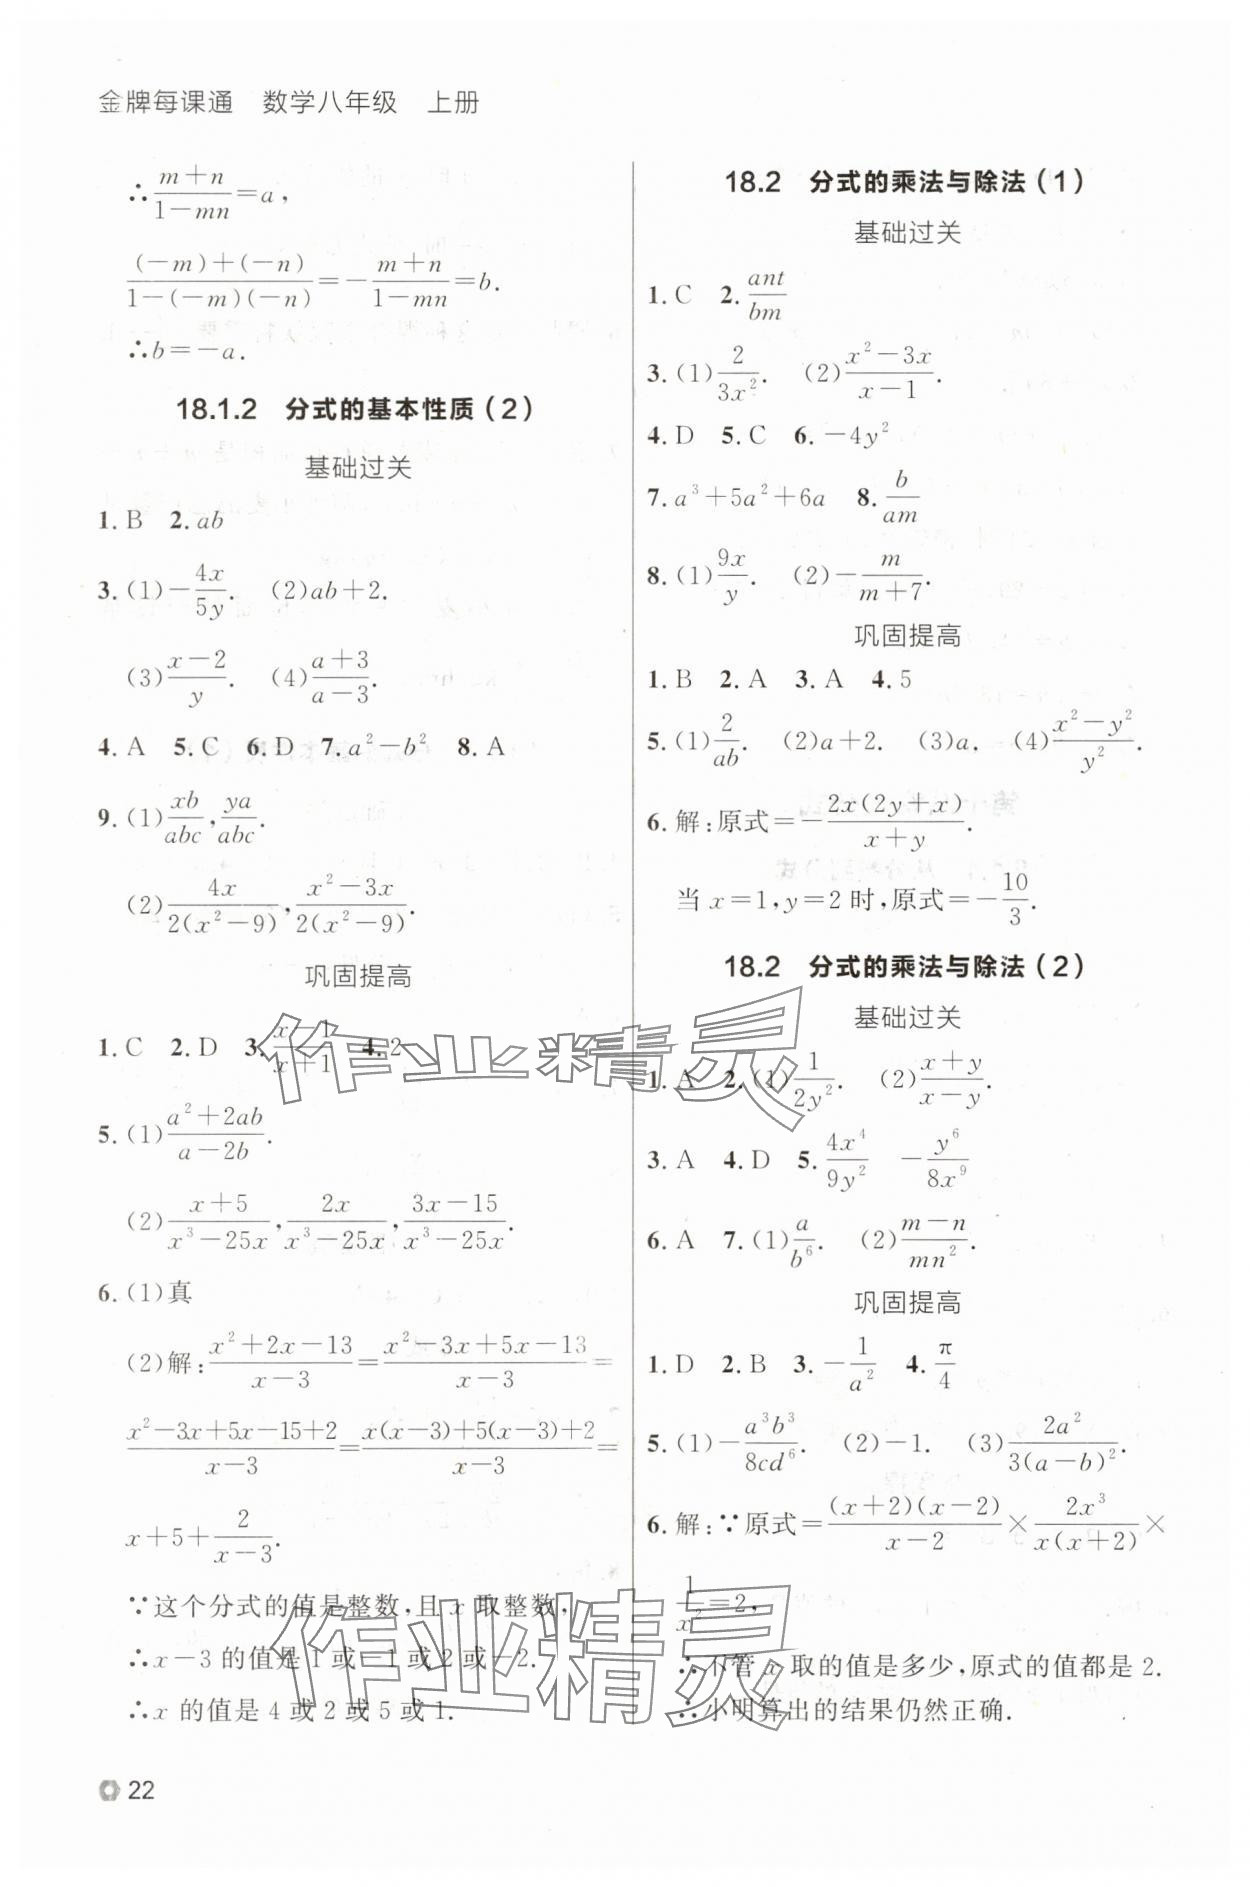 金牌每课通 数学八年级 上册
∴(m+n)/(1-mn)=a,
((-m)+(-n))/(1-(-m)(-n))=-(m+n)/(1-mn)=b.
∴b=-a.
18.1.2 分式的基本性质(2)
基础过关
1.B 2.ab
3.(1)-4x/5y. (2)ab+2.
(3)(x-2)/y. (4)(a+3)/(a-3).
4.A 5.C 6.D 7.a²-b² 8.A
9.(1)xb/abc,ya/abc.
(2)4x/(2(x²-9)),(x²-3x)/(2(x²-9)).
巩固提高
1.C 2.D 3.(x-1)/(x+1) 4.2
5.(1)(a²+2ab)/(a-2b).
(2)(x+5)/(x³-25x),2x/(x³-25x),(3x-15)/(x³-25x).
6.(1)真
(2)解:(x²+2x-13)/(x-3)=(x²-3x+5x-13)/(x-3)=
(x²-3x+5x-15+2)/(x-3)=(x(x-3)+5(x-3)+2)/(x-3)=
x+5+2/(x-3).
∵这个分式的值是整数,且 x 取整数,
∴x-3 的值是 1 或-1 或 2 或-2.
∴x 的值是 4 或 2 或 5 或 1.
22
18.2 分式的乘法与除法(1)
基础过关
1.C 2.ant/bm
3.(1)2/3x². (2)(x²-3x)/(x-1).
4.D 5.C 6.-4y²
7.a³+5a²+6a 8.b/am
8.(1)9x/y. (2)-m/(m+7).
巩固提高
1.B 2.A 3.A 4.5
5.(1)2/ab. (2)a+2. (3)a. (4)(x²-y²)/y².
6.解:原式=-2x(2y+x)/(x+y).
当 x=1,y=2 时,原式=-10/3.
18.2 分式的乘法与除法(2)
基础过关
1.A 2.(1)1/2y². (2)(x+y)/(x-y).
3.A 4.D 5.4x⁴/9y² -y⁶/8x⁹
6.A 7.(1)a/b⁶. (2)(m-n)/mn².
巩固提高
1.D 2.B 3.-1/a² 4.π/4
5.(1)-a³b³/8cd⁶. (2)-1. (3)2a²/(3(a-b)²).
6.解:∵原式=((x+2)(x-2))/(x-2)×2x³/(x(x+2))×
1/x²=2,
∴不管 x 取的值是多少,原式的值都是 2.
∴小明算出的结果仍然正确.
作业精灵
作业精灵